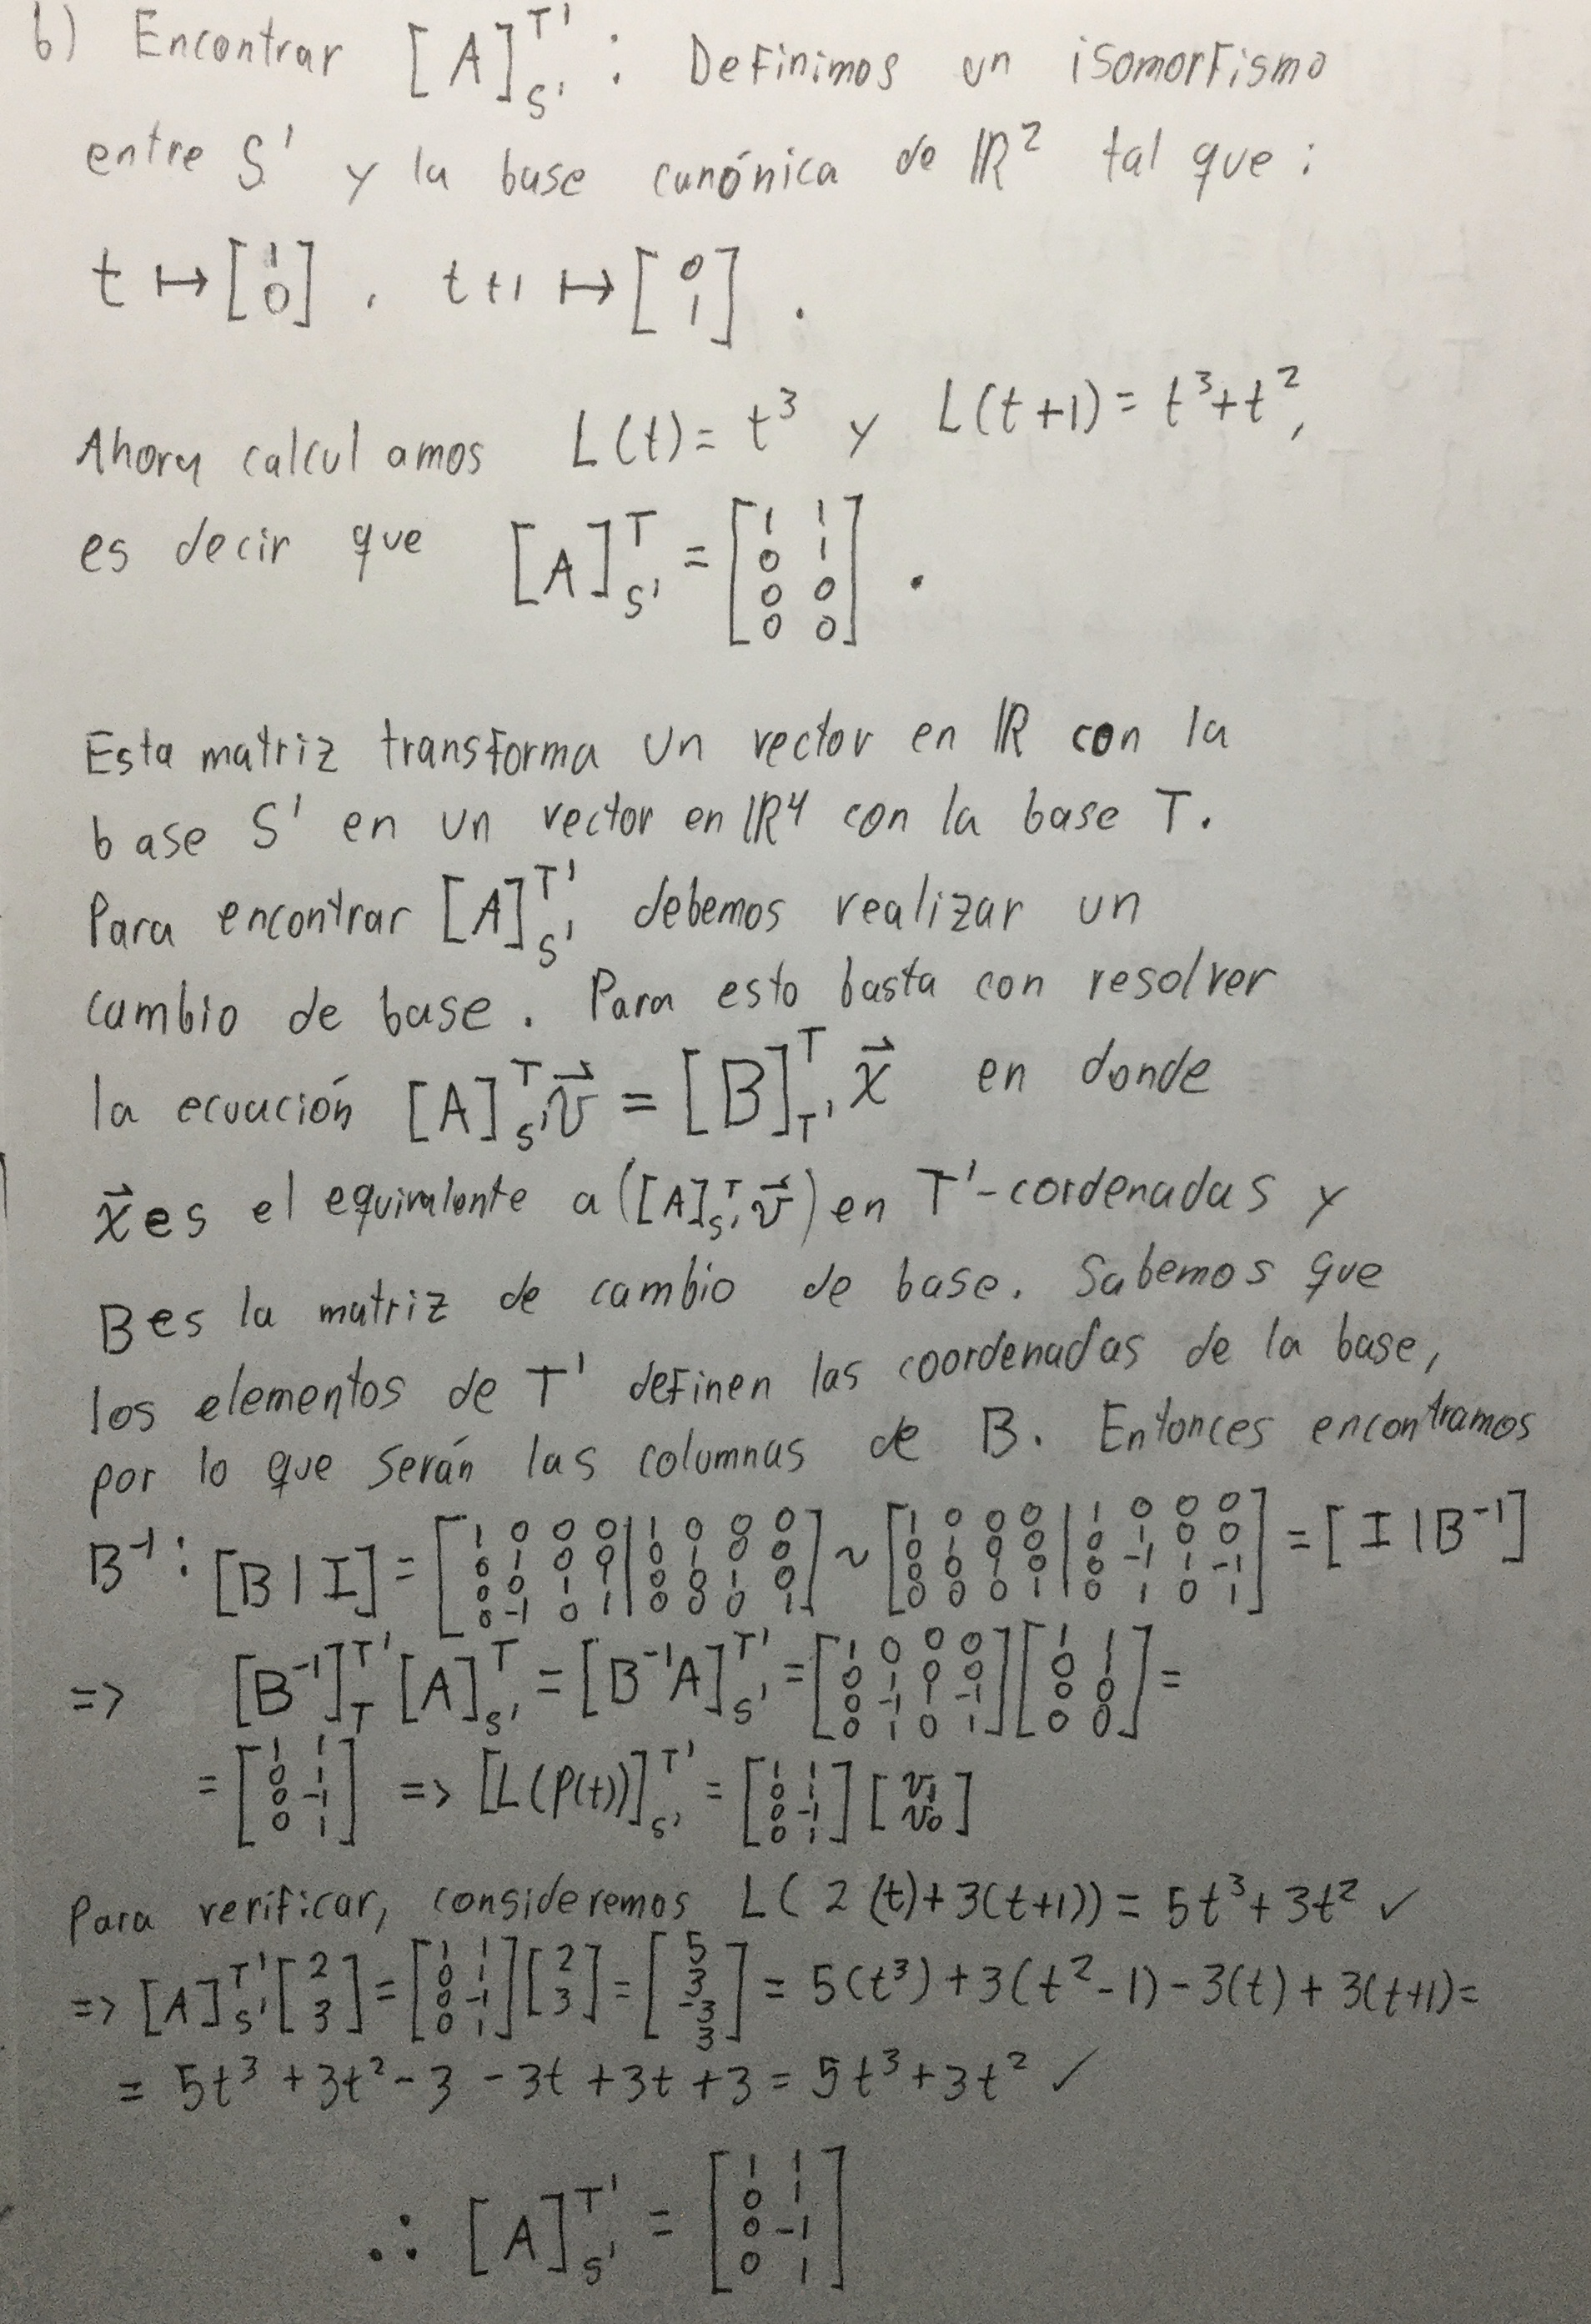 b) Encontrar [A]_{S'}^{T'} : Definimos un isomorfismo
entre S' y la base canónica de ℝ² tal que:
t ↦ [1; 0] , t+1 ↦ [0; 1] .
Ahora calculamos L(t) = t³ y L(t+1) = t³+t²,
es decir que [A]_{S'}^{T} = [1 1; 0 1; 0 0; 0 0] .
Esta matriz transforma un vector en ℝ con la
base S' en un vector en ℝ⁴ con la base T.
Para encontrar [A]_{S'}^{T'} debemos realizar un
cambio de base. Para esto basta con resolver
la ecuación [A]_{S'}^{T} v⃗ = [B]_{T'}^{T} x⃗ en donde
x⃗ es el equivalente a ([A]_{S'}^{T} v⃗) en T'-cordenadas y
B es la matriz de cambio de base. Sabemos que
los elementos de T' definen las coordenadas de la base,
por lo que serán las columnas de B. Entonces encontramos
B⁻¹: [B | I] = [1 0 0 0 | 1 0 0 0; 0 1 0 0 | 0 1 0 0; 0 0 1 1 | 0 0 1 0; 0 -1 0 1 | 0 0 0 1] ~ [1 0 0 0 | 1 0 0 0; 0 1 0 0 | 0 1 0 0; 0 0 1 0 | 0 -1 1 -1; 0 0 0 1 | 0 1 0 1] = [I | B⁻¹]
=> [B⁻¹]_{T}^{T'} [A]_{S'}^{T} = [B⁻¹A]_{S'}^{T'} = [1 0 0 0; 0 1 0 0; 0 -1 1 -1; 0 1 0 1] [1 1; 0 1; 0 0; 0 0] =
= [1 1; 0 1; 0 -1; 0 1] => [L(P(t))]_{S'}^{T'} = [1 1; 0 1; 0 -1; 0 1] [v₁; v₀]
Para verificar, consideremos L(2(t)+3(t+1)) = 5t³+3t² ✓
=> [A]_{S'}^{T'} [2; 3] = [1 1; 0 1; 0 -1; 0 1] [2; 3] = [5; 3; -3; 3] = 5(t³)+3(t²-1)-3(t)+3(t+1)=
= 5t³+3t²-3-3t+3t+3 = 5t³+3t² ✓
∴ [A]_{S'}^{T'} = [1 1; 0 1; 0 -1; 0 1]